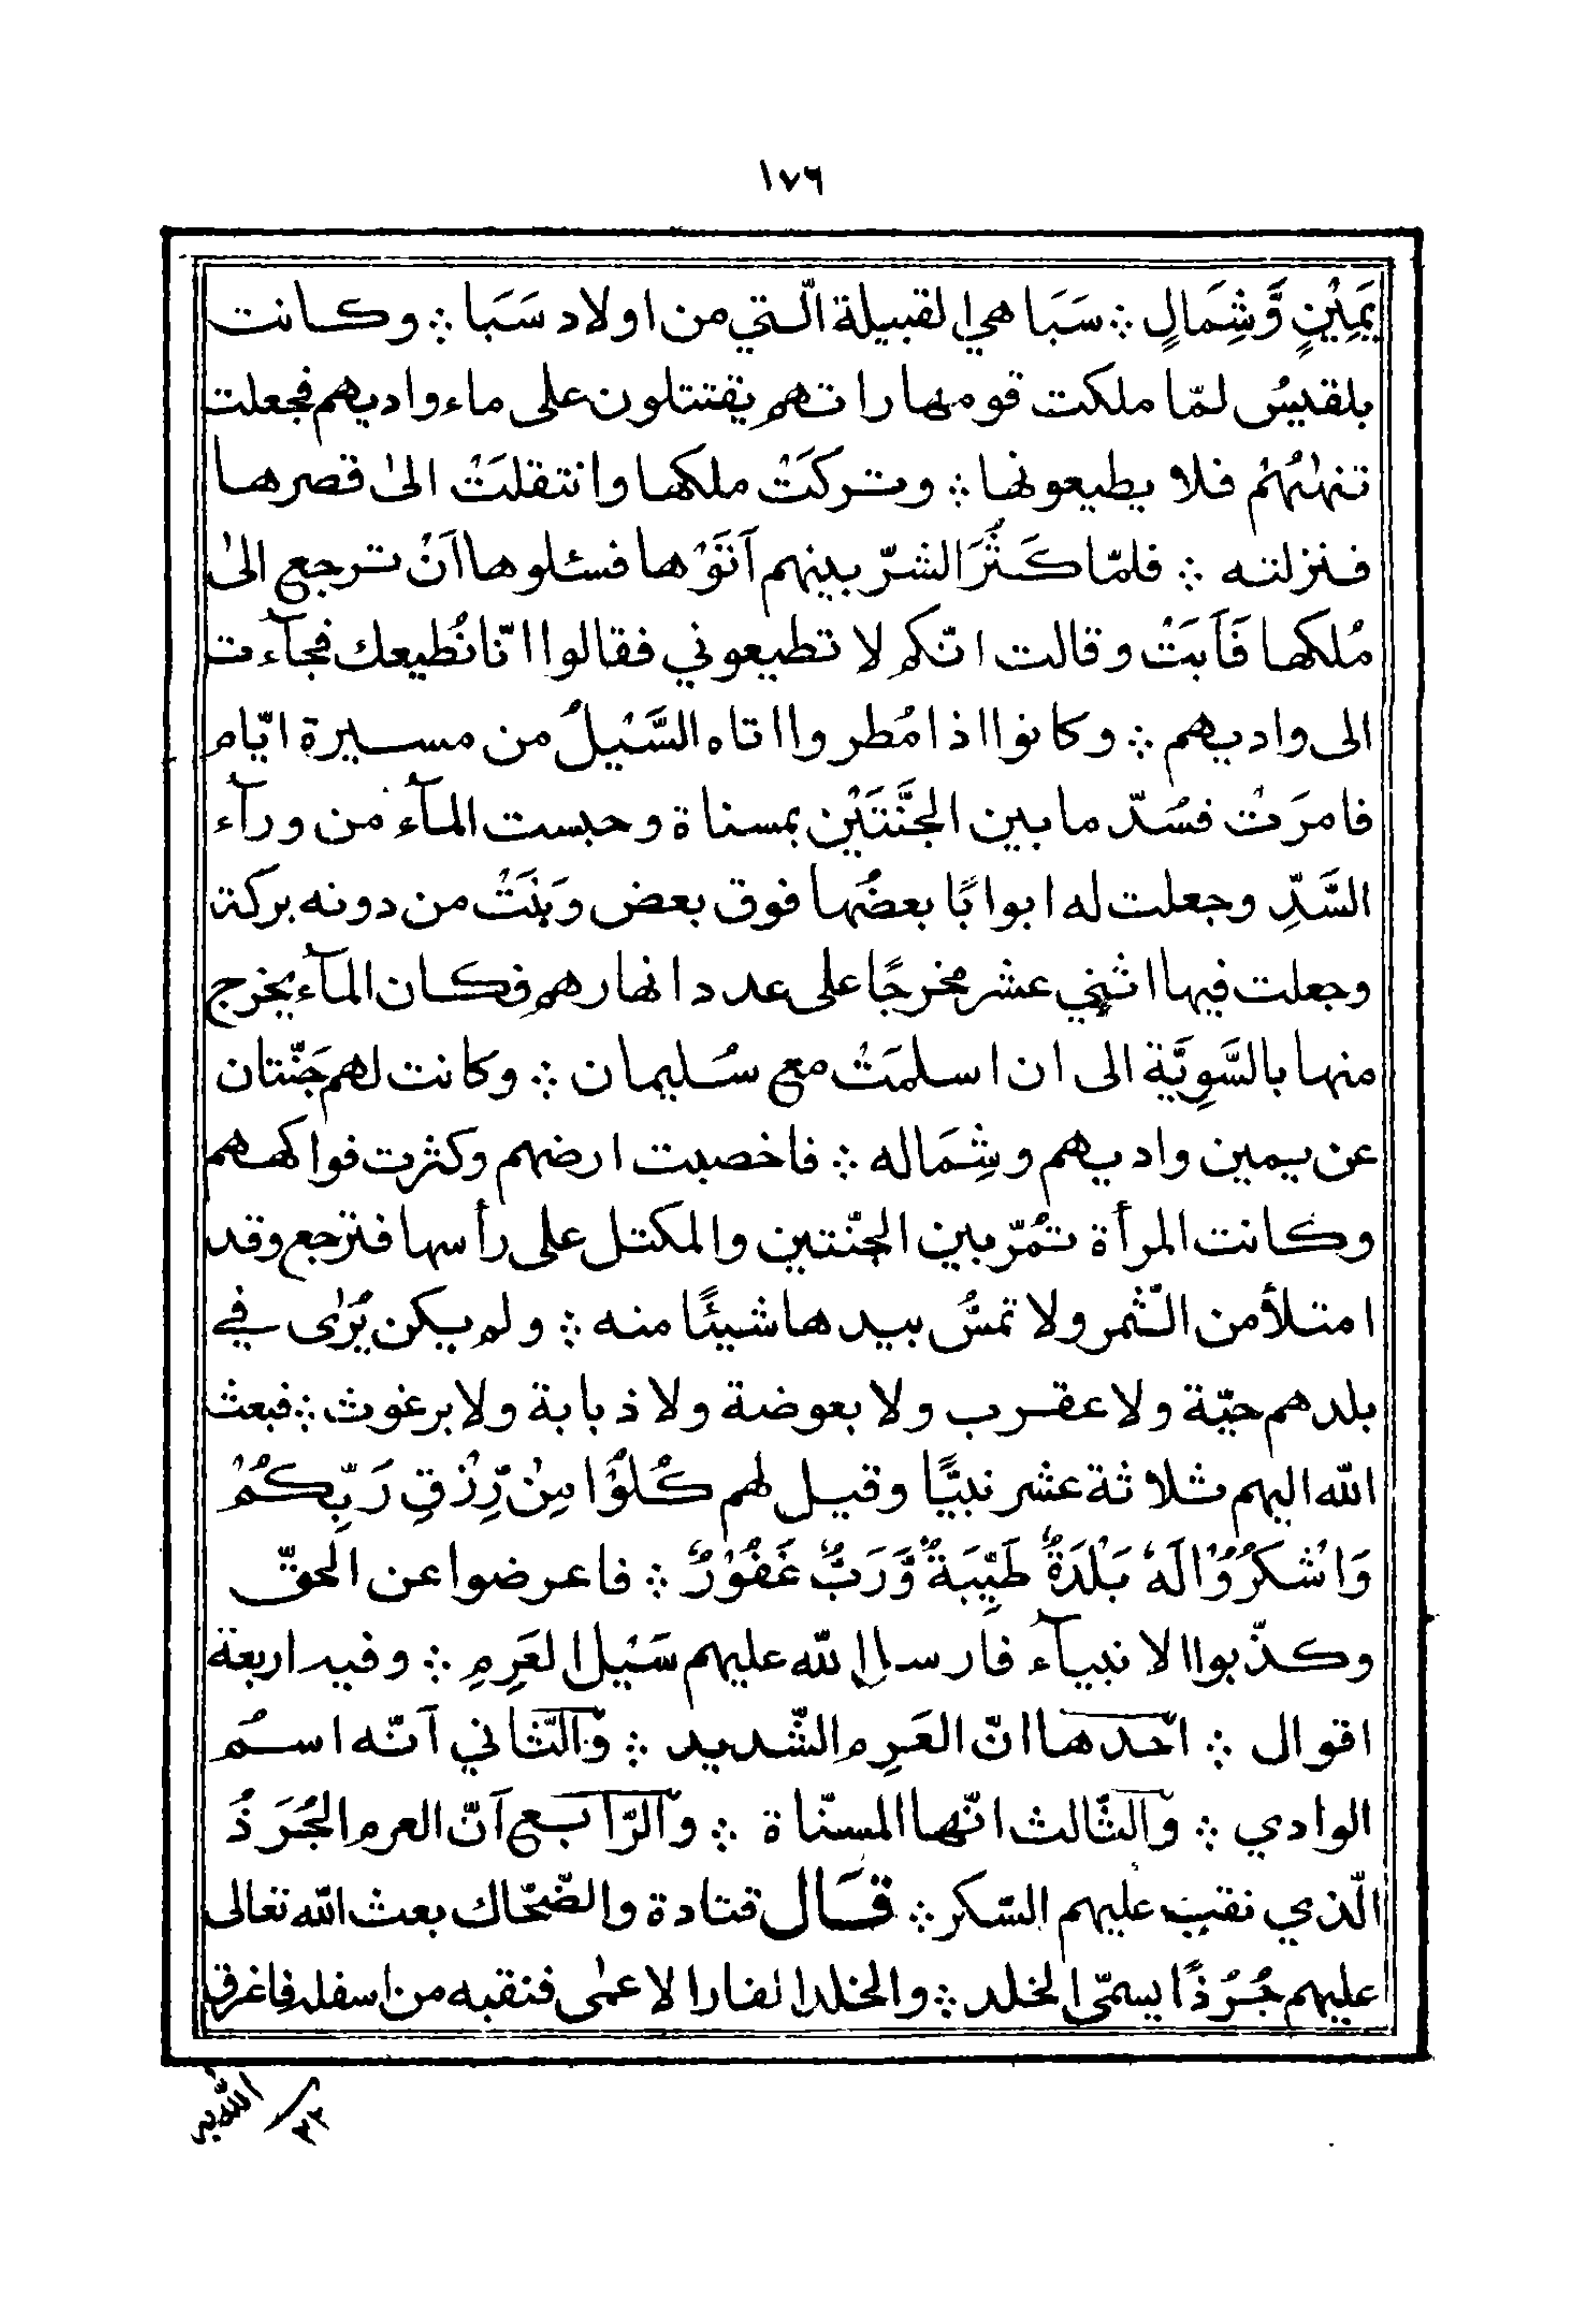 ١٧٦
يَمِيْنٍ وَّشِمَالٍ ∴ سَبَا هي القبيلة الّتي من اولاد سَبَا ∴ وكانت
بلقيسُ لمّا ملكت قومها راتهم يقتتلون على ماء واديهم فجعلت
تنهٰهُمْ فلا يطيعونها ∴ وتركَتْ ملكها وانتقلَتْ الىٰ قصرها
فنزلته ∴ فلمّا كَثُرَ الشرّ بينهم اَتَوْها فسئلوها اَنْ ترجع الىٰ
مُلكها فَاَبَتْ وقالت انّكم لا تطيعوني فقالوا انّا نُطيعك فجآءت
الى واديهم ∴ وكانوا اذا مُطروا اتاه السَّيْلُ من مسيرة ايّام
فامرَتْ فسُدّ ما بين الجَّنَتَيْن بمسناة وحبست المآء من ورآء
السَّدِّ وجعلت له ابوابًا بعضُها فوق بعض وَبَنَتْ من دونه بركة
وجعلت فيها اثني عشر مخرجًا على عدد انهارهم فكان المآء يخرج
منها بالسَّوِيَّة الى ان اسلمَتْ مع سُليمان ∴ وكانت لهم جَنّتان
عن يمين واديهم وشِمَاله ∴ فاخصبت ارضهم وكثرت فواكههم
وكانت المرأة تمُرّ بين الجنّتين والمكتل على رأسها فترجع وقد
امتلأ من الثّمر ولا تمسُّ بيدها شيئًا منه ∴ ولم يكن يُرٰى في
بلدهم حيّة ولا عقرب ولا بعوضة ولا ذبابة ولا برغوث ∴ فبعث
الله اليهم ثلاثة عشر نبيًّا وقيل لهم كُلُوْا مِنْ رِّزْقِ رَبِّكُمْ
وَاشْكُرُوْا لَهُ بَلْدَةٌ طَيِّبَةٌ وَّرَبٌّ غَفُوْرٌ ∴ فاعرضوا عن الحقّ
وكذّبوا الانبيآء فارسل الله عليهم سَيْل العَرِمِ ∴ وفيه اربعة
اقوال ∴ احدها انّ العَرِم الشّديد ∴ والثّاني اَنّه اسمُ
الوادي ∴ والثّالث انّها المسنّاة ∴ والرّابع اَنّ العرم الجُرَذُ
الّذي نقب عليهم السّكر ∴ قَال قتادة والضّحّاك بعث الله تعالى
عليهم جُرُذًا يسمّى الخلد ∴ والخلد الفار الاعمٰى فنقبه من اسفله فاغرق
الله به